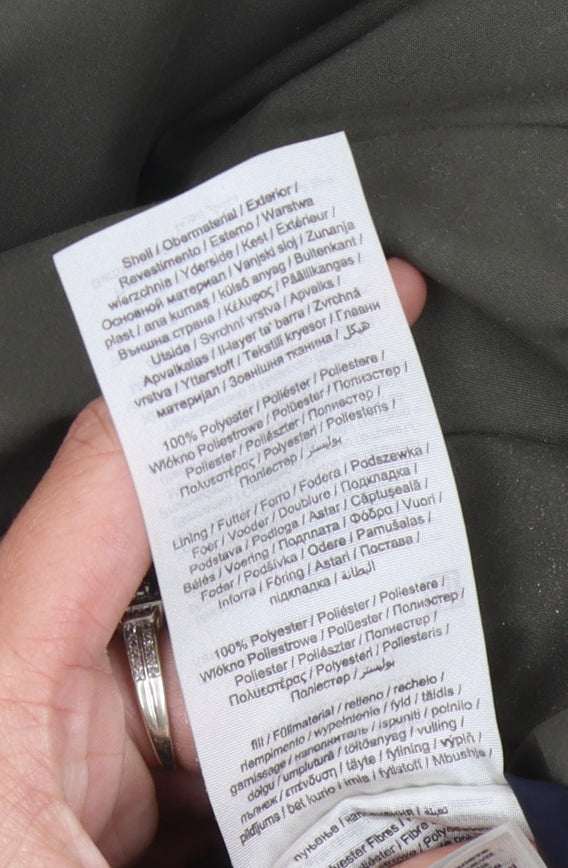 Shell / Obermaterial / Exterior /
Revestimento / Esterno / Warstwa
wierzchnia / Yderside / Kest / Extérieur /
Основной материал / Vanjski sloj / Zunanja
plast / ana kumaş / külső anyag / Buitenkant /
Външна страна / Κέλυφος / Päällikangas /
Utsida / Svrchní vrstva / Apvalks /
Apvalkalas / Il-layer ta' barra / Zvrchná
vrstva / Ytterstoff / Tekstili kryesor / Главни
материјал / Зовнішня тканина / هيكل
100% Polyester / Poliéster / Poliestere /
Włókno Poliestrowe / Polüester / Полиэстер /
Poliester / Poliészter / Полиестер /
Πολυεστέρας / Polyesteri / Poliesteris /
Поліестер / بوليستر
Lining / Futter / Forro / Fodera / Podszewka /
Foer / Vooder / Doublure / Подкладка /
Podstava / Podloga / Astar / Căptușeală /
Bélés / Voering / Подплата / Φόδρα / Vuori /
Foder / Podšívka / Odere / Pamušalas /
Inforra / Fôring / Astari / Постава /
підкладка / البطانة
100% Polyester / Poliéster / Poliestere /
Włókno Poliestrowe / Polüester / Полиэстер /
Poliester / Poliészter / Полиестер /
Πολυεστέρας / Polyesteri / Poliesteris /
Поліестер / بوليستر
fill / Füllmaterial / relleno / recheio /
riempimento / wypełnienie / fyld / täidis /
garnissage / наполнитель / ispuniti / polnilo /
dolgu / umplutură / töltőanyag / vulling /
пълнеж / επένδυση / täyte / fyllning / výplň /
pildījums / bet kurio / imla / fyllstoff / Mbushje /